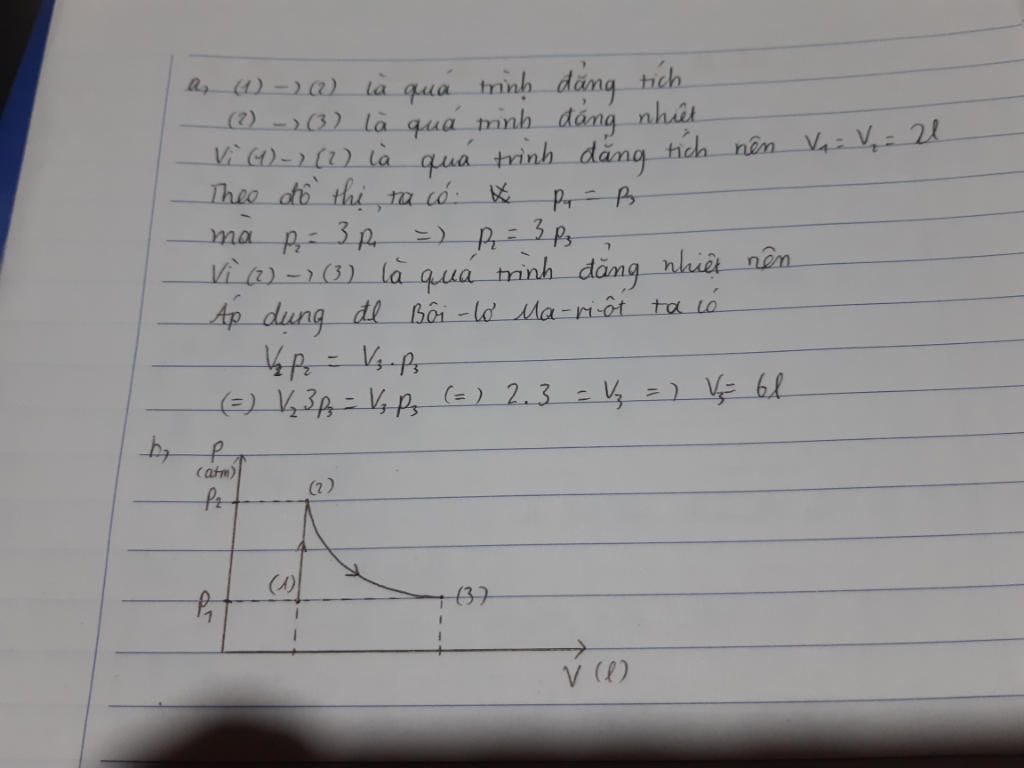 a, (1) -> (2) là quá trình đẳng tích
(2) -> (3) là quá trình đẳng nhiệt
Vì (1) -> (2) là quá trình đẳng tích nên V₁ = V₂ = 2l
Theo đồ thị, ta có: p₁ = p₃
mà p₂ = 3p₁ => p₂ = 3p₃
Vì (2) -> (3) là quá trình đẳng nhiệt nên
Áp dụng đl Bôi-lơ Ma-ri-ốt ta có
V₂p₂ = V₃.p₃
(=) V₂3p₃ = V₃p₃ (=) 2.3 = V₃ => V₃ = 6l
b,
p
(atm)
p₂
(2)
(1)
p₁
(3)
V (l)